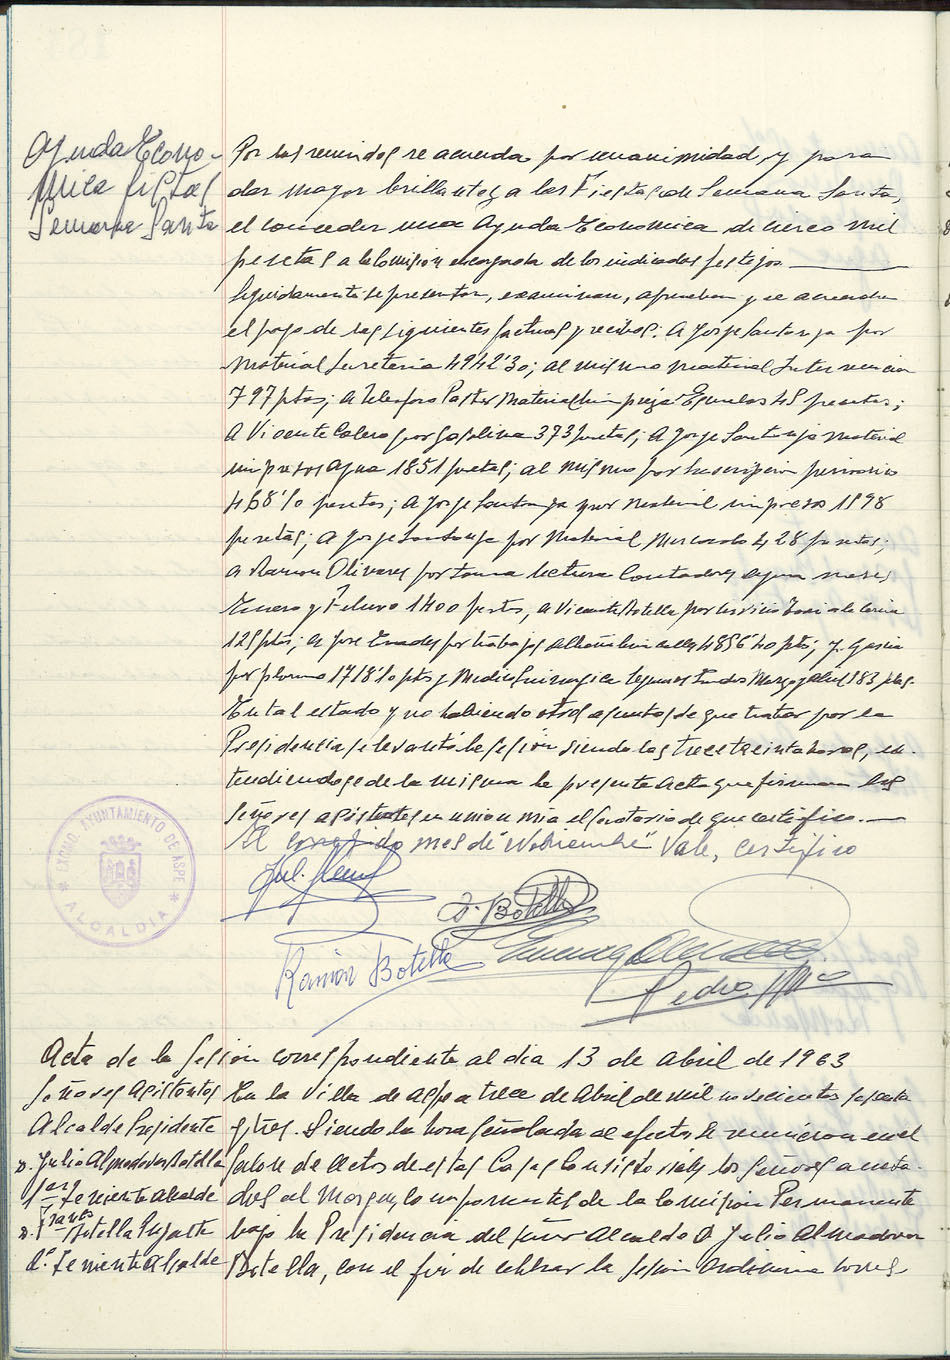 Ayuda Econo-
mica fiestas
Semana Santa
Por los reunidos se acuerda por unanimidad y para
dar mayor brillantez a las Fiestas de Semana Santa,
el conceder una Ayuda Economica de cinco mil
pesetas a la Comision encargada de los indicados festejos.
Seguidamente se presentan, examinan, aprueban y se acuerda
el pago de las siguientes facturas y recibos: A Jorge Santonja por
Material Secretaria 4942'30; al mismo material Intervencion
797 ptas; a Telesforo Pastor Material limpieza Escuelas 45 pesetas;
A Vicente Calero por gasolina 373 pesetas; A Jorge Santonja material
impresos agua 1851 pesetas; al mismo por suscripcion periodico
468'10 pesetas; a Jorge Santonja por material impreso 1598
pesetas; a Jorge Santonja por Material Mercado 428 pesetas;
a Ramon Olivares por toma lectura Contadores agua meses
Enero y Febrero 1400 pesetas, a Vicente Botella por servicio
125 ptas; a Jose por trabajos albañileria calles 4856'40 pts; y Garcia
por plomo 1718'10 pts y Marzo y Abril 183 ptas.
En tal estado y no habiendo otros asuntos de que tratar por la
Presidencia se levantó la sesión siendo las trece treinta horas, ex-
tendiendose de la misma la presente acta que firman los
señores asistentes en union mia el Secretario de que certifico.—
El corregido mes de "Noviembre" Vale, certifico
EXCMO. AYUNTAMIENTO DE ASPE
* ALCALDIA *
J. Botella
Ramon Botella
Pedro
Acta de la Sesión correspondiente al dia 13 de abril de 1963
Señores Asistentes
Alcalde Presidente
D. Julio Almodovar Botella
1er Teniente alcalde
D. Botella
2º Teniente Alcalde
En la Villa de Aspe a trece de Abril de mil novecientos sesenta
y tres. Siendo la hora señalada al efecto se reunieron en el
Salon de Actos de estas Casas Consistoriales los señores anota-
dos al margen, componentes de la Comision Permanente
bajo la Presidencia del señor Alcalde D. Julio Almodovar
Botella, con el fin de celebrar la Sesion Ordinaria corres